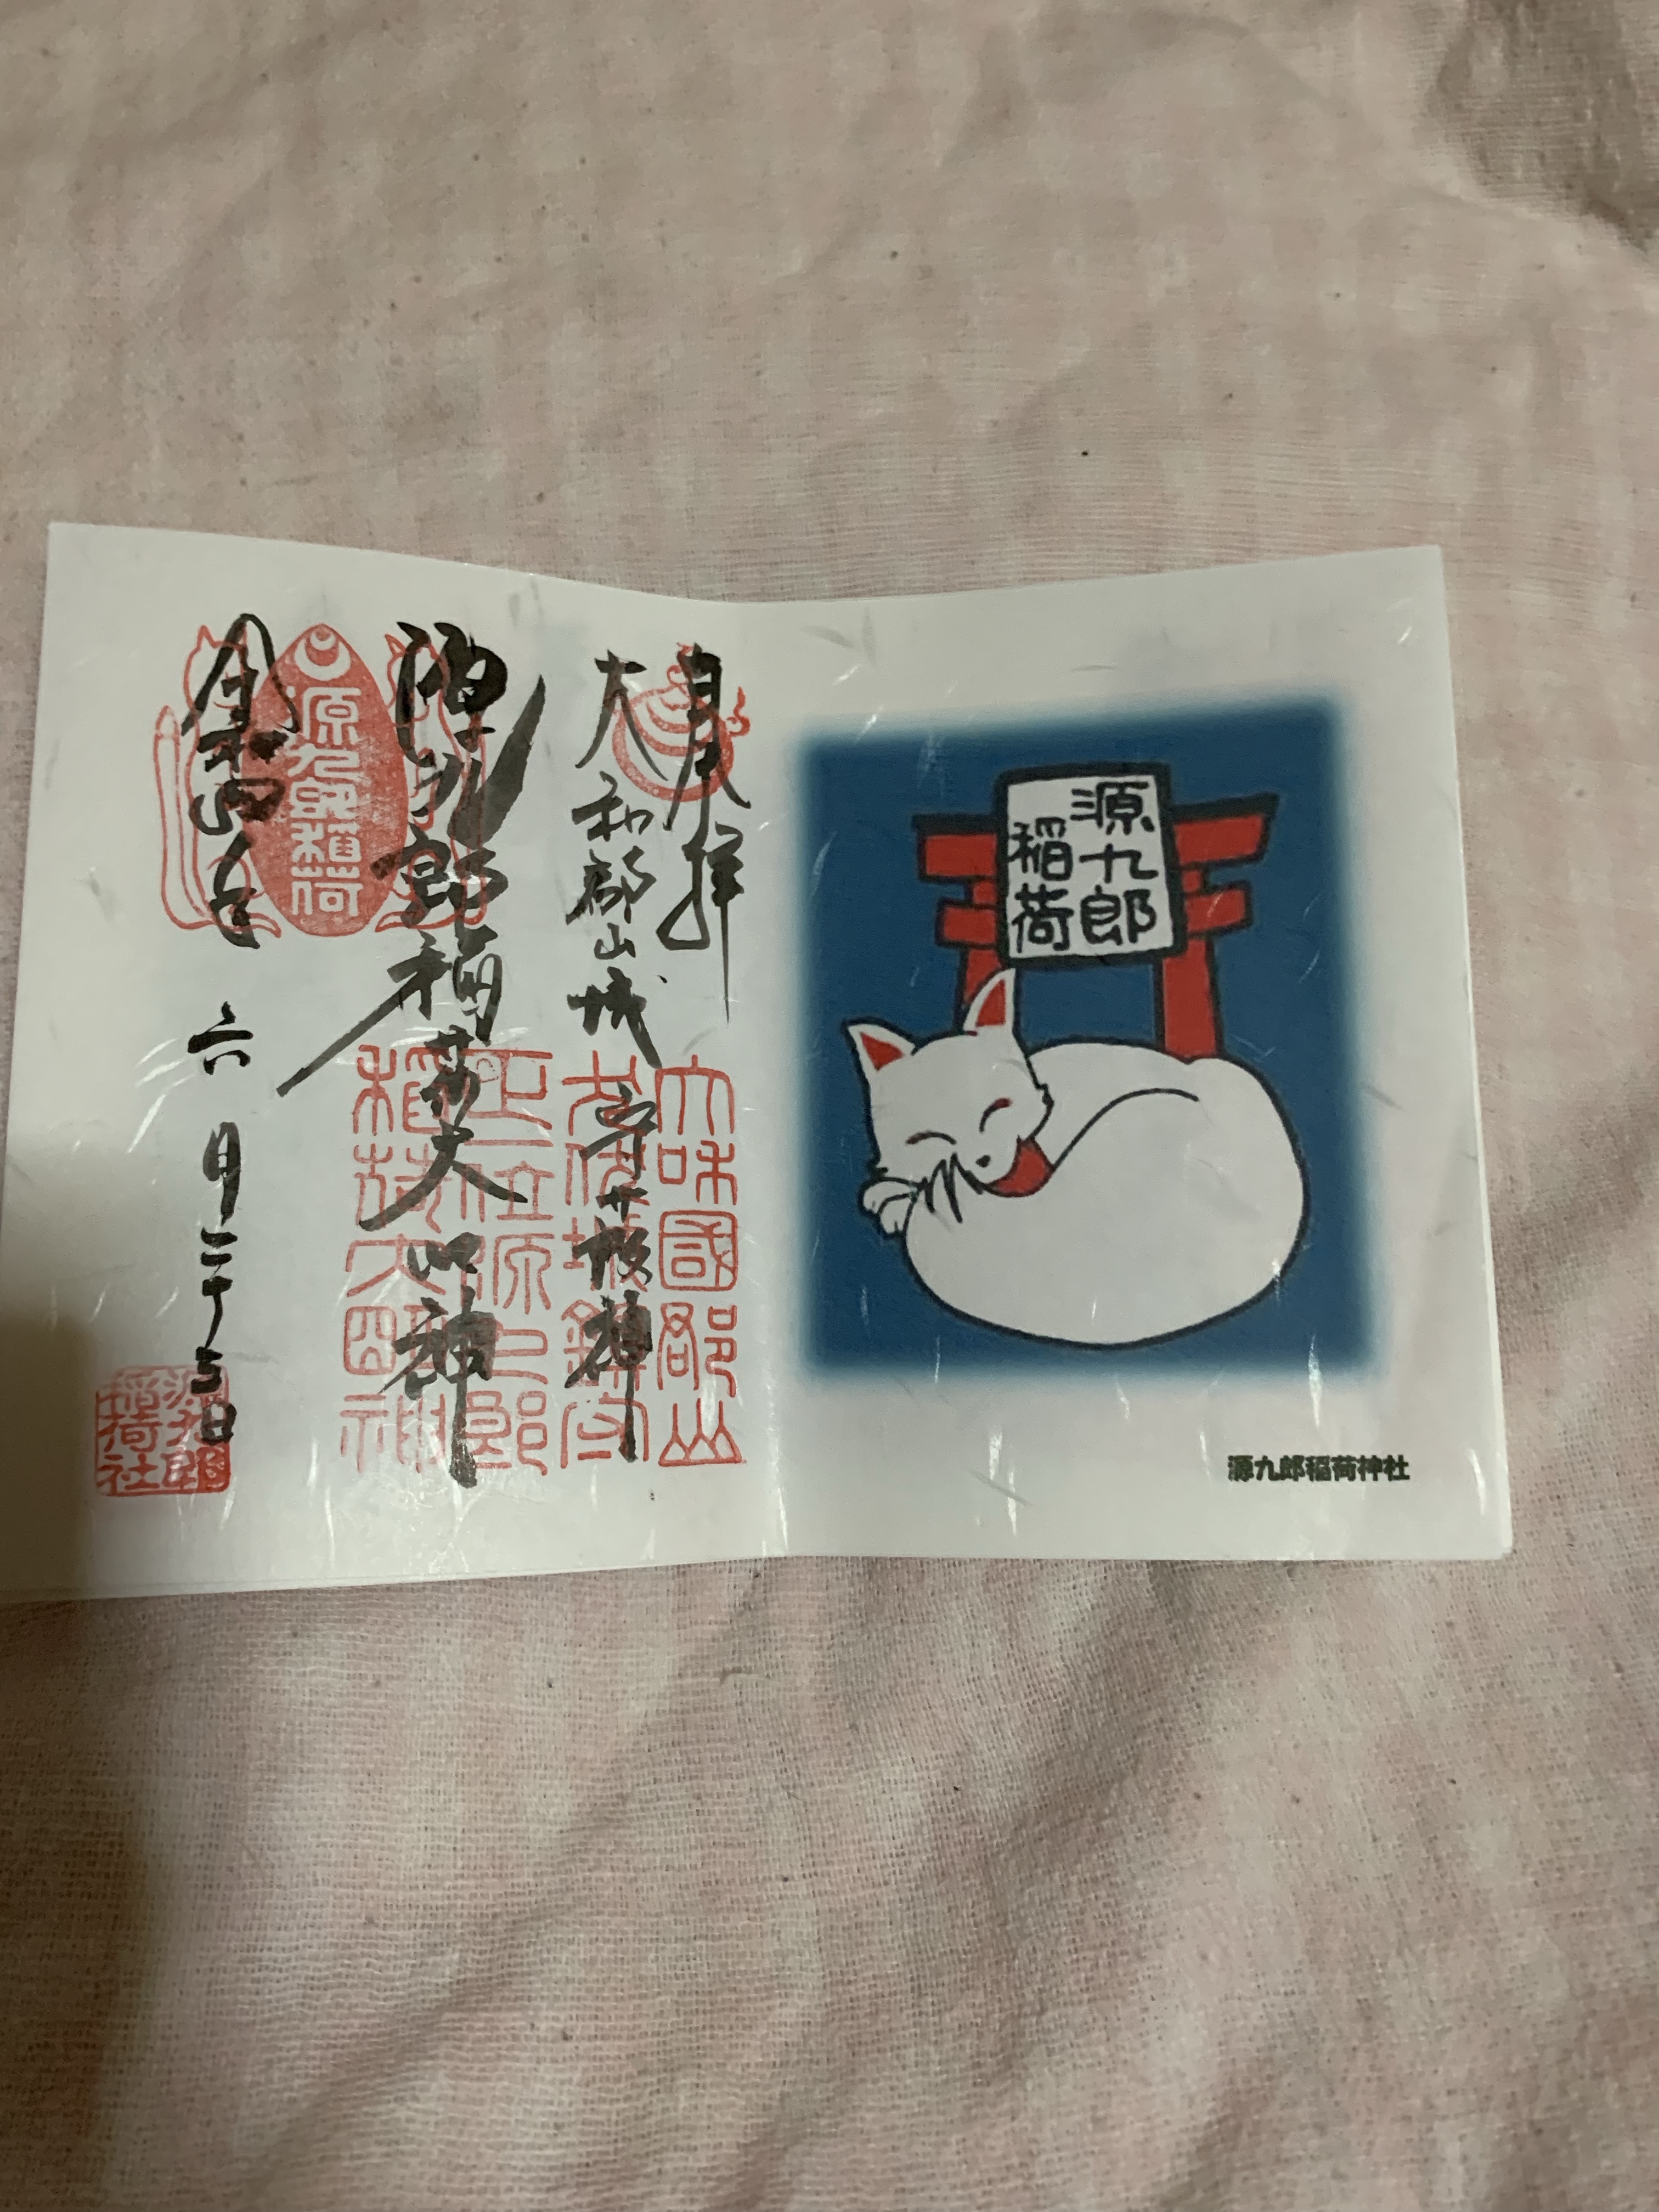 源九郎
稲荷
源九郎稲荷神社
奉拝
大和郡山城
源九郎稲荷大明神
令和四年 六月二十五日
源九郎稲荷
大和國郡山
城鎮守
正一位源九郎
稲荷大明神
源九郎
稲荷社